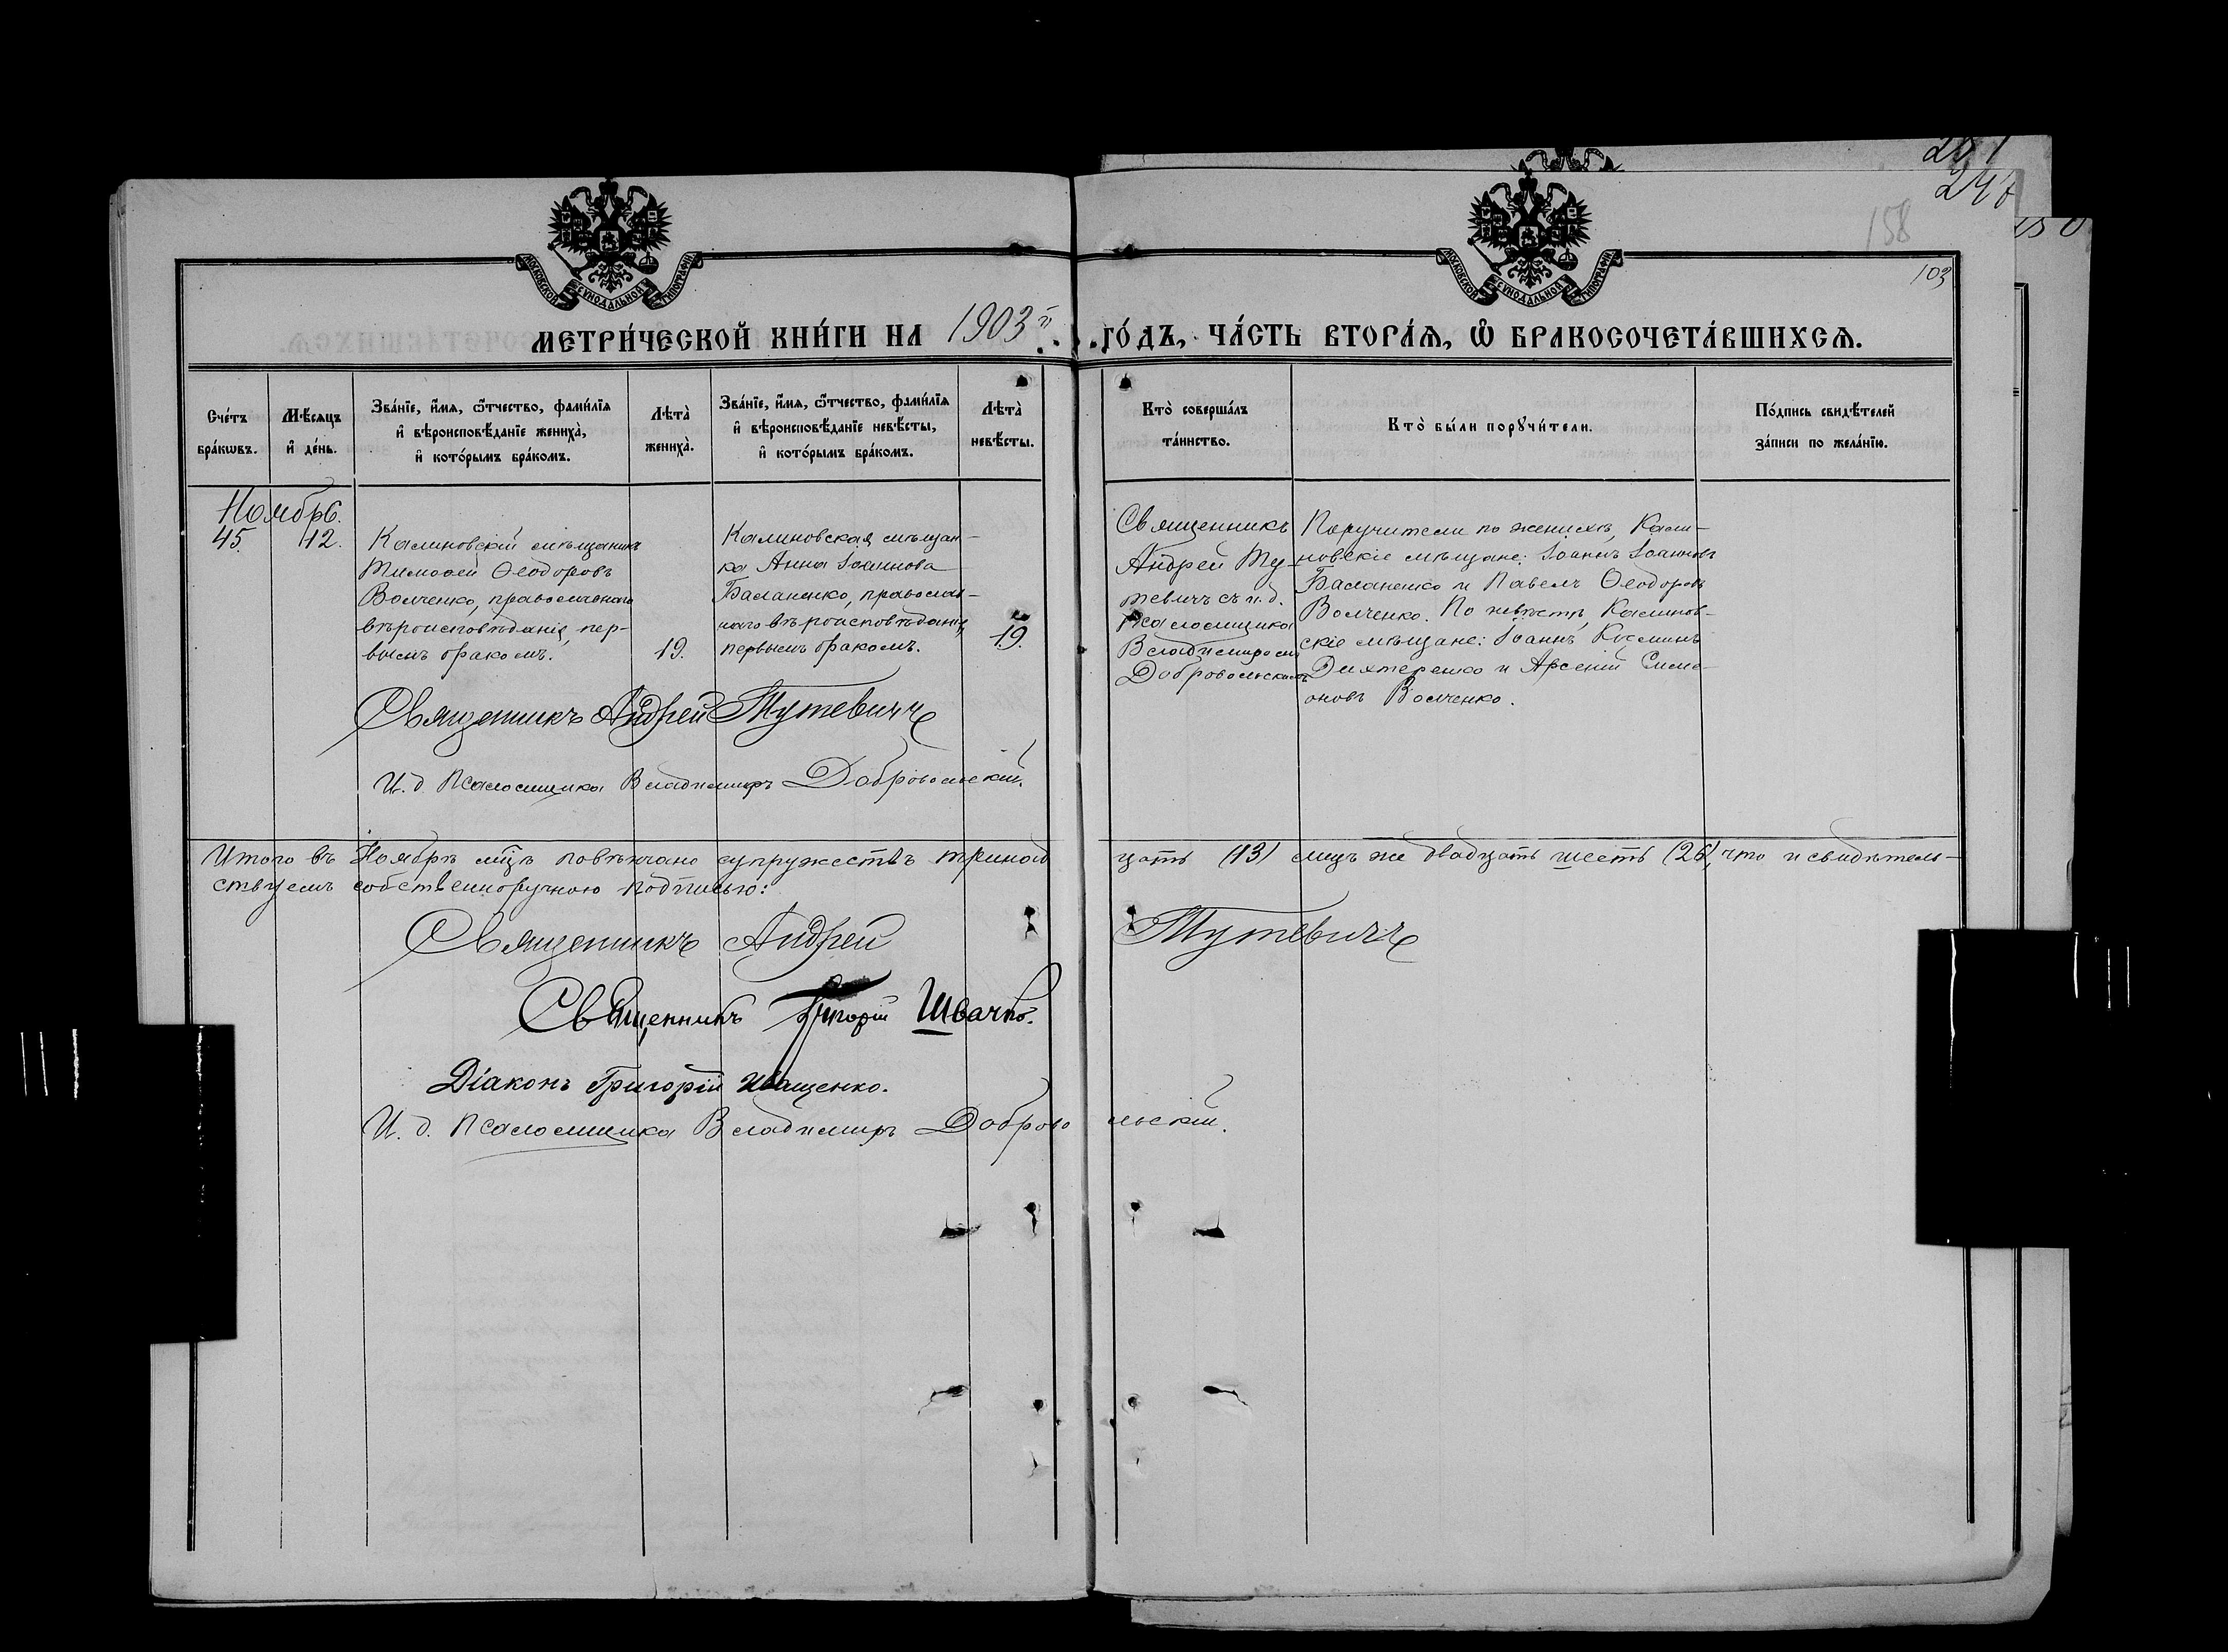 201
247
150
158
103
МОСКОВСКОЙ СѴНОДАЛЬНОЙ ТИПОГРАФІИ
МОСКОВСКОЙ СѴНОДАЛЬНОЙ ТИПОГРАФІИ
МЕТРИ́ЧЕСКОЙ КНИ́ГИ НА 1903й
ГО́ДЪ, ЧА́СТЬ ВТОРА́Я, Ѽ БРАКОСОЧЕТА́ВШИХСЯ.
Сче́тъ бра́кѡвъ.
Мѣ́сяцъ и҆ де́нь.
Зва́нїе, и҆́мя, ѻ҆́тчество, фами́лїя
и҆ вѣроисповѣ́данїе жениха̀,
и҆ кото́рымъ бра́комъ.
Лѣта̀ жениха̀.
Зва́нїе, и҆́мя, ѻ҆́тчество, фами́лїя
и҆ вѣроисповѣ́данїе невѣ́сты,
и҆ кото́рымъ бра́комъ.
Лѣта̀ невѣ́сты.
Кто̀ соверша́лъ
та́инство.
Кто̀ бы́ли порꙋчи́тели.
По́дпись свидѣ́телей
за́писи по жела́нїю.
Ноябрь.
45. 12.
Калиновскій мѣщанинъ
Тимоѳей Ѳеодоровъ
Волченко, православнаго
вѣроисповѣданія, пер-
вымъ бракомъ.
19.
Калиновская мѣщан-
ка Анна Іоаннова
Баланенко, православ-
наго вѣроисповѣданія,
первымъ бракомъ.
19.
Священникъ
Андрей Ту-
тевичъ съ и.д.
Псаломщика
Владиміромъ
Добровольскимъ
Поручители по женихѣ, Кали-
новскіе мѣщане: Іоаннъ Іоанновъ
Баланенко и Павелъ Ѳеодоровъ
Волченко. По невѣстѣ, Калинов-
скіе мѣщане: Іоаннъ Косминъ
Дихтеренко и Арсеній Симе-
оновъ Волченко.
Священникъ Андрей Тутевичъ
И. д. Псаломщика Владиміръ Добровольскій.
Итого въ Ноябрѣ мцѣ повѣнчано супружествъ тринад
цать (13) лицъ же двадцать шесть (26), что и свидѣтель-
ствуемъ собственноручною подписью:
Священникъ Андрей Тутевичъ
Священникъ Григорій Швачко.
Діаконъ Григорій Иващенко.
И. д. Псаломщика Владиміръ Добровольскій.